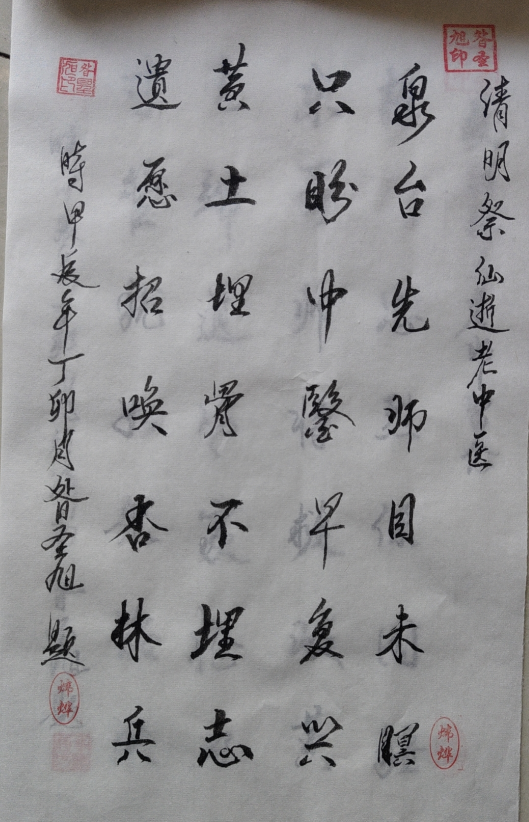 清明祭仙逝老中医
泉台先师目未瞑
只盼中醫早复兴
黄土埋骨不埋志
遗愿招唤杏林兵
時甲辰年丁卯月昝圣旭题
昝圣旭印